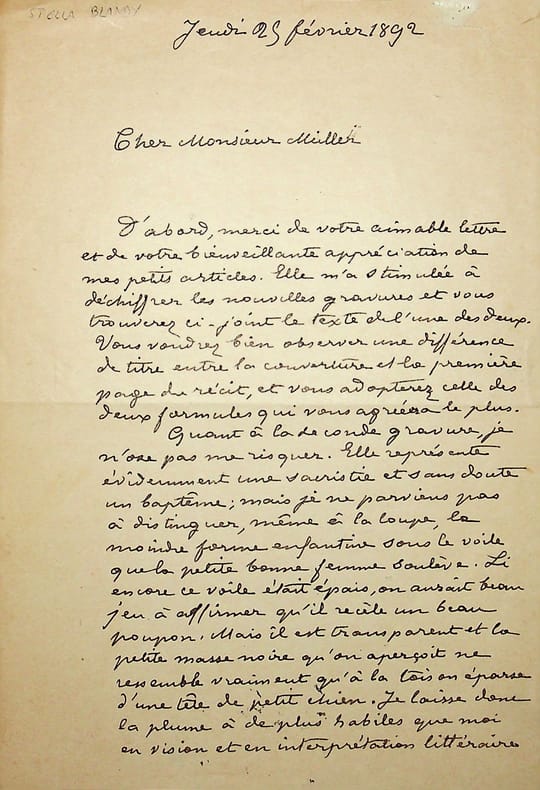 STELLA BLANDY
Jeudi 25 février 1892
Cher Monsieur Müller
D'abord, merci de votre aimable lettre
et de votre bienveillante appréciation de
mes petits articles. Elle m'a stimulée à
déchiffrer les nouvelles gravures et vous
trouverez ci-joint le texte de l'une des deux.
Vous voudrez bien observer une différence
de titre entre la couverture et la première
page du récit, et vous adopterez celle des
deux formules qui vous agréera le plus.
Quant à la seconde gravure, je
n'ose pas me risquer. Elle représente
évidemment une sacristie et sans doute
un baptême; mais je ne parviens pas
à distinguer, même à la loupe, la
moindre forme enfantine sous le voile
que la petite bonne femme soulève. Si
encore ce voile était épais, on aurait beau
jeu à affirmer qu'il recèle un beau
poupon. Mais il est transparent et la
petite masse noire qu'on aperçoit ne
ressemble vraiment qu'à la toison éparse
d'une tête de petit chien. Je laisse donc
la plume à de plus habiles que moi
en vision et en interprétation littéraire